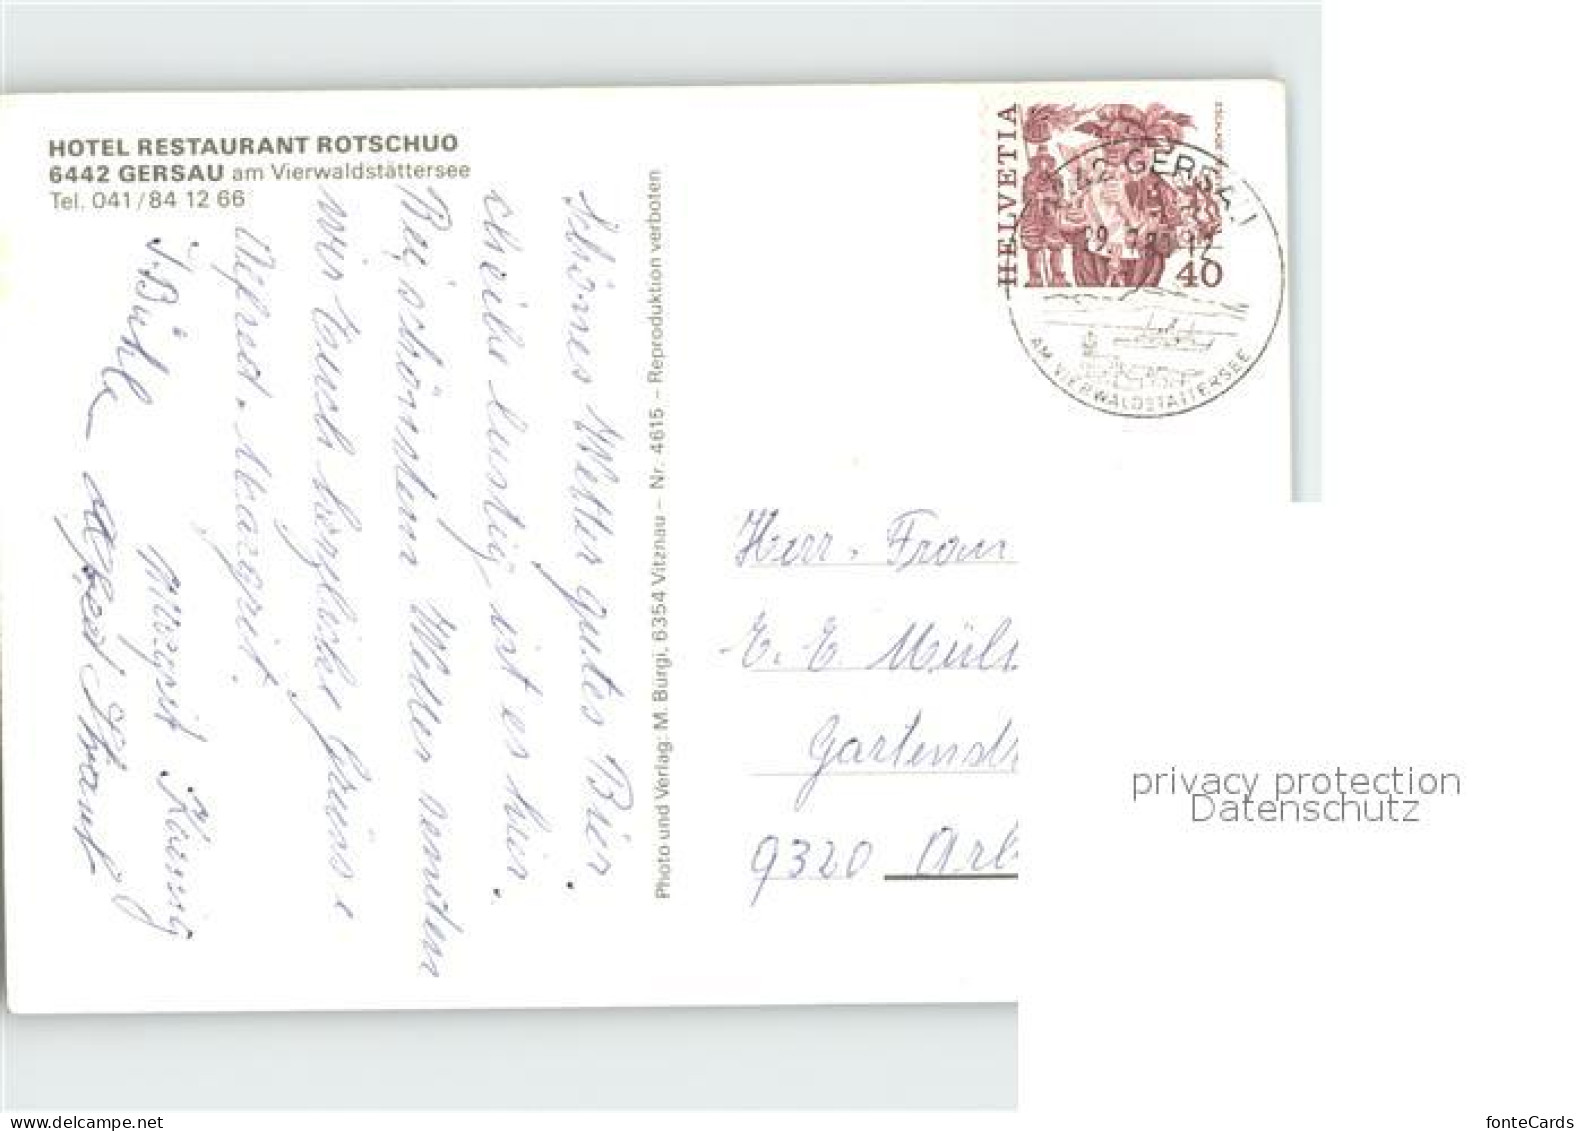 HOTEL RESTAURANT ROTSCHUO
6442 GERSAU am Vierwaldstättersee
Tel. 041/84 12 66
Schönes Wetter gutes Bier.
scheibe lustig, ist es hier.
Bei schönstem Wetter senden
wir Euch herzliche Grüsse
Alfred. Margrit.
Margrit
Alfred
Photo und Verlag: M. Bürgi, 6354 Vitznau – Nr. 4615 – Reproduktion verboten
HELVETIA
ESCALADE
40
6442 GERSAU
AM VIERWALDSTÄTTERSEE
Herr. Frau
E. E. Mül
Gartenst
9320 Arb
privacy protection
Datenschutz
www.delcampe.net
fonteCards